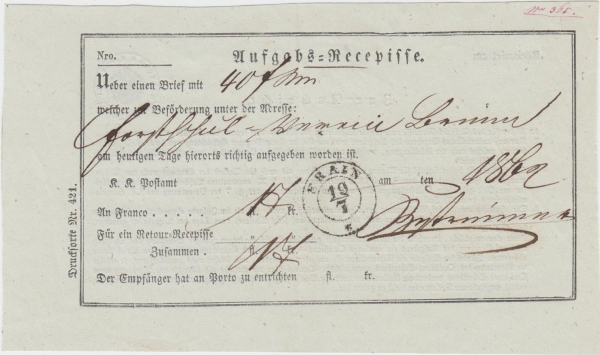 Nro.
Aufgabs=Recepisse.
Ueber einen Brief mit 40 f
welcher zur Beförderung unter der Adresse:
Forstschul-Verein Brünn
am heutigen Tage hierorts richtig aufgegeben worden ist.
K. K. Postamt FRAIN 19/7 am ten 1862
An Franco . . . . . fl. 17 kr.
Für ein Retour=Recepisse
Zusammen . fl. 17 kr.
Der Empfänger hat an Porto zu entrichten fl. kr.
Drucksorte Nr. 421.